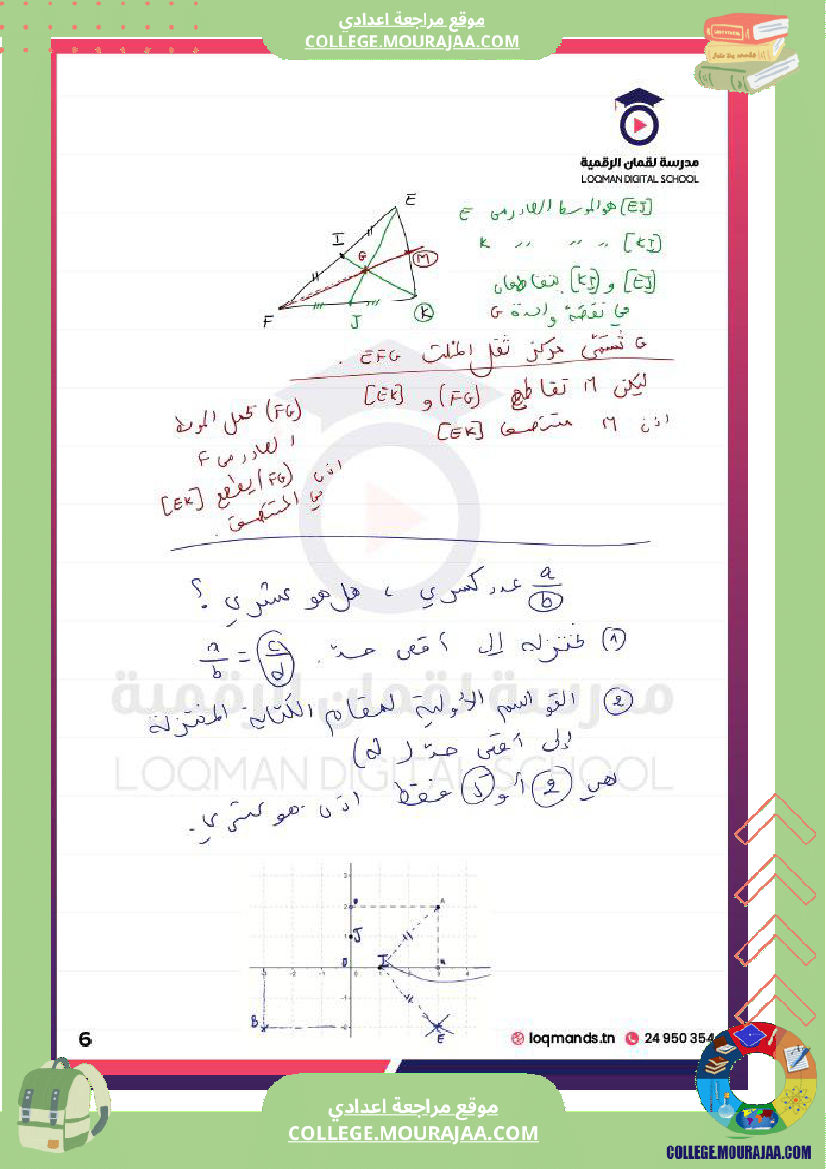 موقع مراجعة اعدادي
COLLEGE.MOURAJAA.COM
مدرسة لقمان الرقمية
LOQMAN DIGITAL SCHOOL
[EJ] هو الموسط الصادر من E
[KI] " " " K
[EJ] و [KI] يتقاطعان
في نقطة واحدة G
G تسمّى مركز ثقل المثلث EFG .
ليكن M تقاطع (FG) و [EK]
اذن M منتصف [EK]
(FG) يحمل الموسط
الصادر من F
اذن (FG) يقطع [EK]
في المنتصف .
E
I
G
M
F
J
K
a/b عدد كسري ، هل هو عشري ؟
1 نختزله إلى أقصى حدّ . c/d = a/b
2 القواسم الأولية لمقام الكتابة المختزلة
إلى أقصى حدّ (d)
هي 2 أو 5 فقط اذن هو عشري .
مدرسة لقمان الرقمية
LOQMAN DIGITAL SCHOOL
3
2
A
1
J
0
I
-3 -2 -1 0 2 3 4
-1
B
-2
E
6
loqmands.tn
24 950 354
موقع مراجعة اعدادي
COLLEGE.MOURAJAA.COM
COLLEGE.MOURAJAA.COM